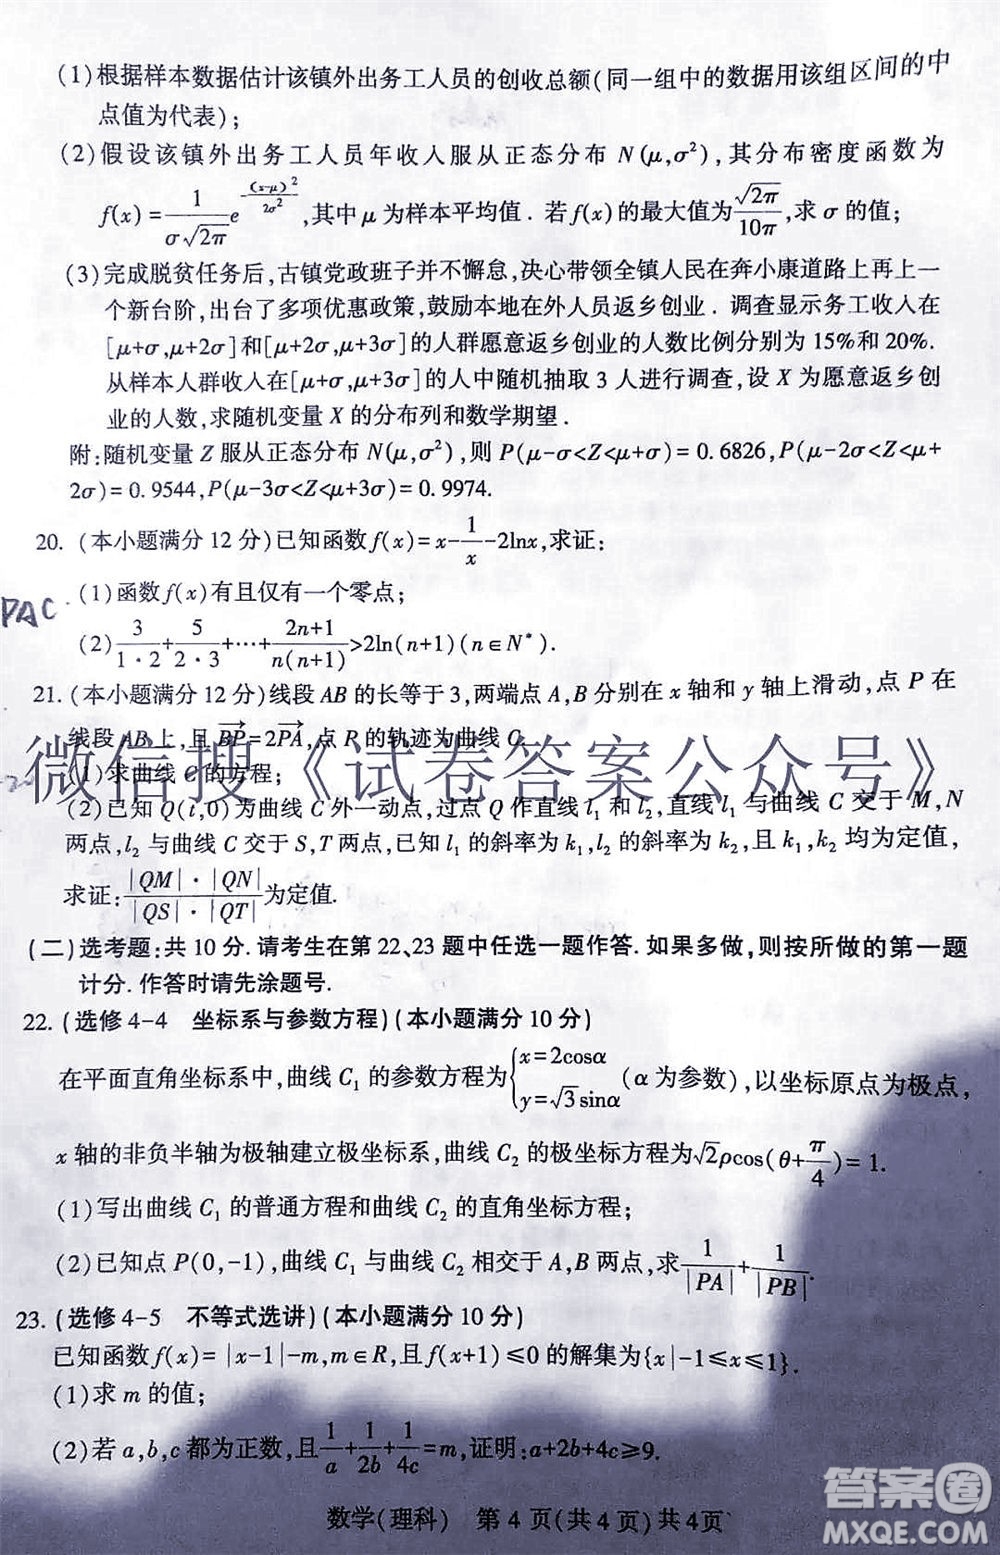 (1)根据样本数据估计该镇外出务工人员的创收总额(同一组中的数据用该组区间的中
点值为代表);
(2)假设该镇外出务工人员年收入服从正态分布 N(μ,σ²),其分布密度函数为
f(x)=1/(σ√2π) e^(-(x-μ)²/2σ²),其中 μ 为样本平均值.若f(x)的最大值为√2π/10π,求 σ 的值;
(3)完成脱贫任务后,古镇党政班子并不懈怠,决心带领全镇人民在奔小康道路上再上一
个新台阶,出台了多项优惠政策,鼓励本地在外人员返乡创业.调查显示务工收入在
[μ+σ,μ+2σ]和[μ+2σ,μ+3σ]的人群愿意返乡创业的人数比例分别为 15%和 20%.
从样本人群收入在[μ+σ,μ+2σ]的人中随机抽取 3 人进行调查,设 X 为愿意返乡创
业的人数,求随机变量 X 的分布列和数学期望.
附:随机变量 Z 服从正态分布 N(μ,σ²),则 P(μ-σ<Z<μ+σ)=0.6826,P(μ-2σ<Z<μ+
2σ)=0.9544,P(μ-3σ<Z<μ+3σ)=0.9974.
20.(本小题满分 12 分)已知函数f(x)=x-1/x-2lnx,求证:
(1)函数f(x)有且仅有一个零点;
PAC
(2)3/(1·2)+5/(2·3)+…+(2n+1)/(n(n+1))>2ln(n+1)(n∈N*).
21.(本小题满分 12 分)线段 AB 的长等于 3,两端点 A,B 分别在 x 轴和 y 轴上滑动,点 P 在
线段 AB 上,且 BP=2PA,点 R 的轨迹为曲线 C.
微信搜《试卷答案公众号》
(1)求曲线 C 的方程;
(2)已知 Q(t,0)为曲线 C 外一动点,过点 Q 作直线 l₁ 和 l₂,直线 l₁ 与曲线 C 交于 M,N
两点,l₂ 与曲线 C 交于 S,T 两点,已知 l₁ 的斜率为 k₁,l₂ 的斜率为 k₂,且 k₁,k₂ 均为定值,
求证:|QM|·|QN|/|QS|·|QT|为定值.
(二)选考题:共 10 分.请考生在第 22、23 题中任选一题作答.如果多做,则按所做的第一题
计分.作答时请先涂题号.
22.(选修 4-4 坐标系与参数方程)(本小题满分 10 分)
在平面直角坐标系中,曲线 C₁ 的参数方程为{x=2cosα y=√3sinα(α 为参数),以坐标原点为极点,
x 轴的非负半轴为极轴建立极坐标系,曲线 C₂ 的极坐标方程为√2ρcos(θ+π/4)=1.
(1)写出曲线 C₁ 的普通方程和曲线 C₂ 的直角坐标方程;
(2)已知点 P(0,-1),曲线 C₁ 与曲线 C₂ 相交于 A,B 两点,求1/|PA|+1/|PB|.
23.(选修 4-5 不等式选讲)(本小题满分 10 分)
已知函数f(x)=|x-1|-m,m∈R,且f(x+1)≤0 的解集为{x|-1≤x≤1}.
(1)求 m 的值;
(2)若 a,b,c 都为正数,且1/a+1/2b+1/4c=m,证明:a+2b+4c≥9.
数学(理科) 第 4 页(共 4 页) 共 4 页
答案圈
MXQE.COM